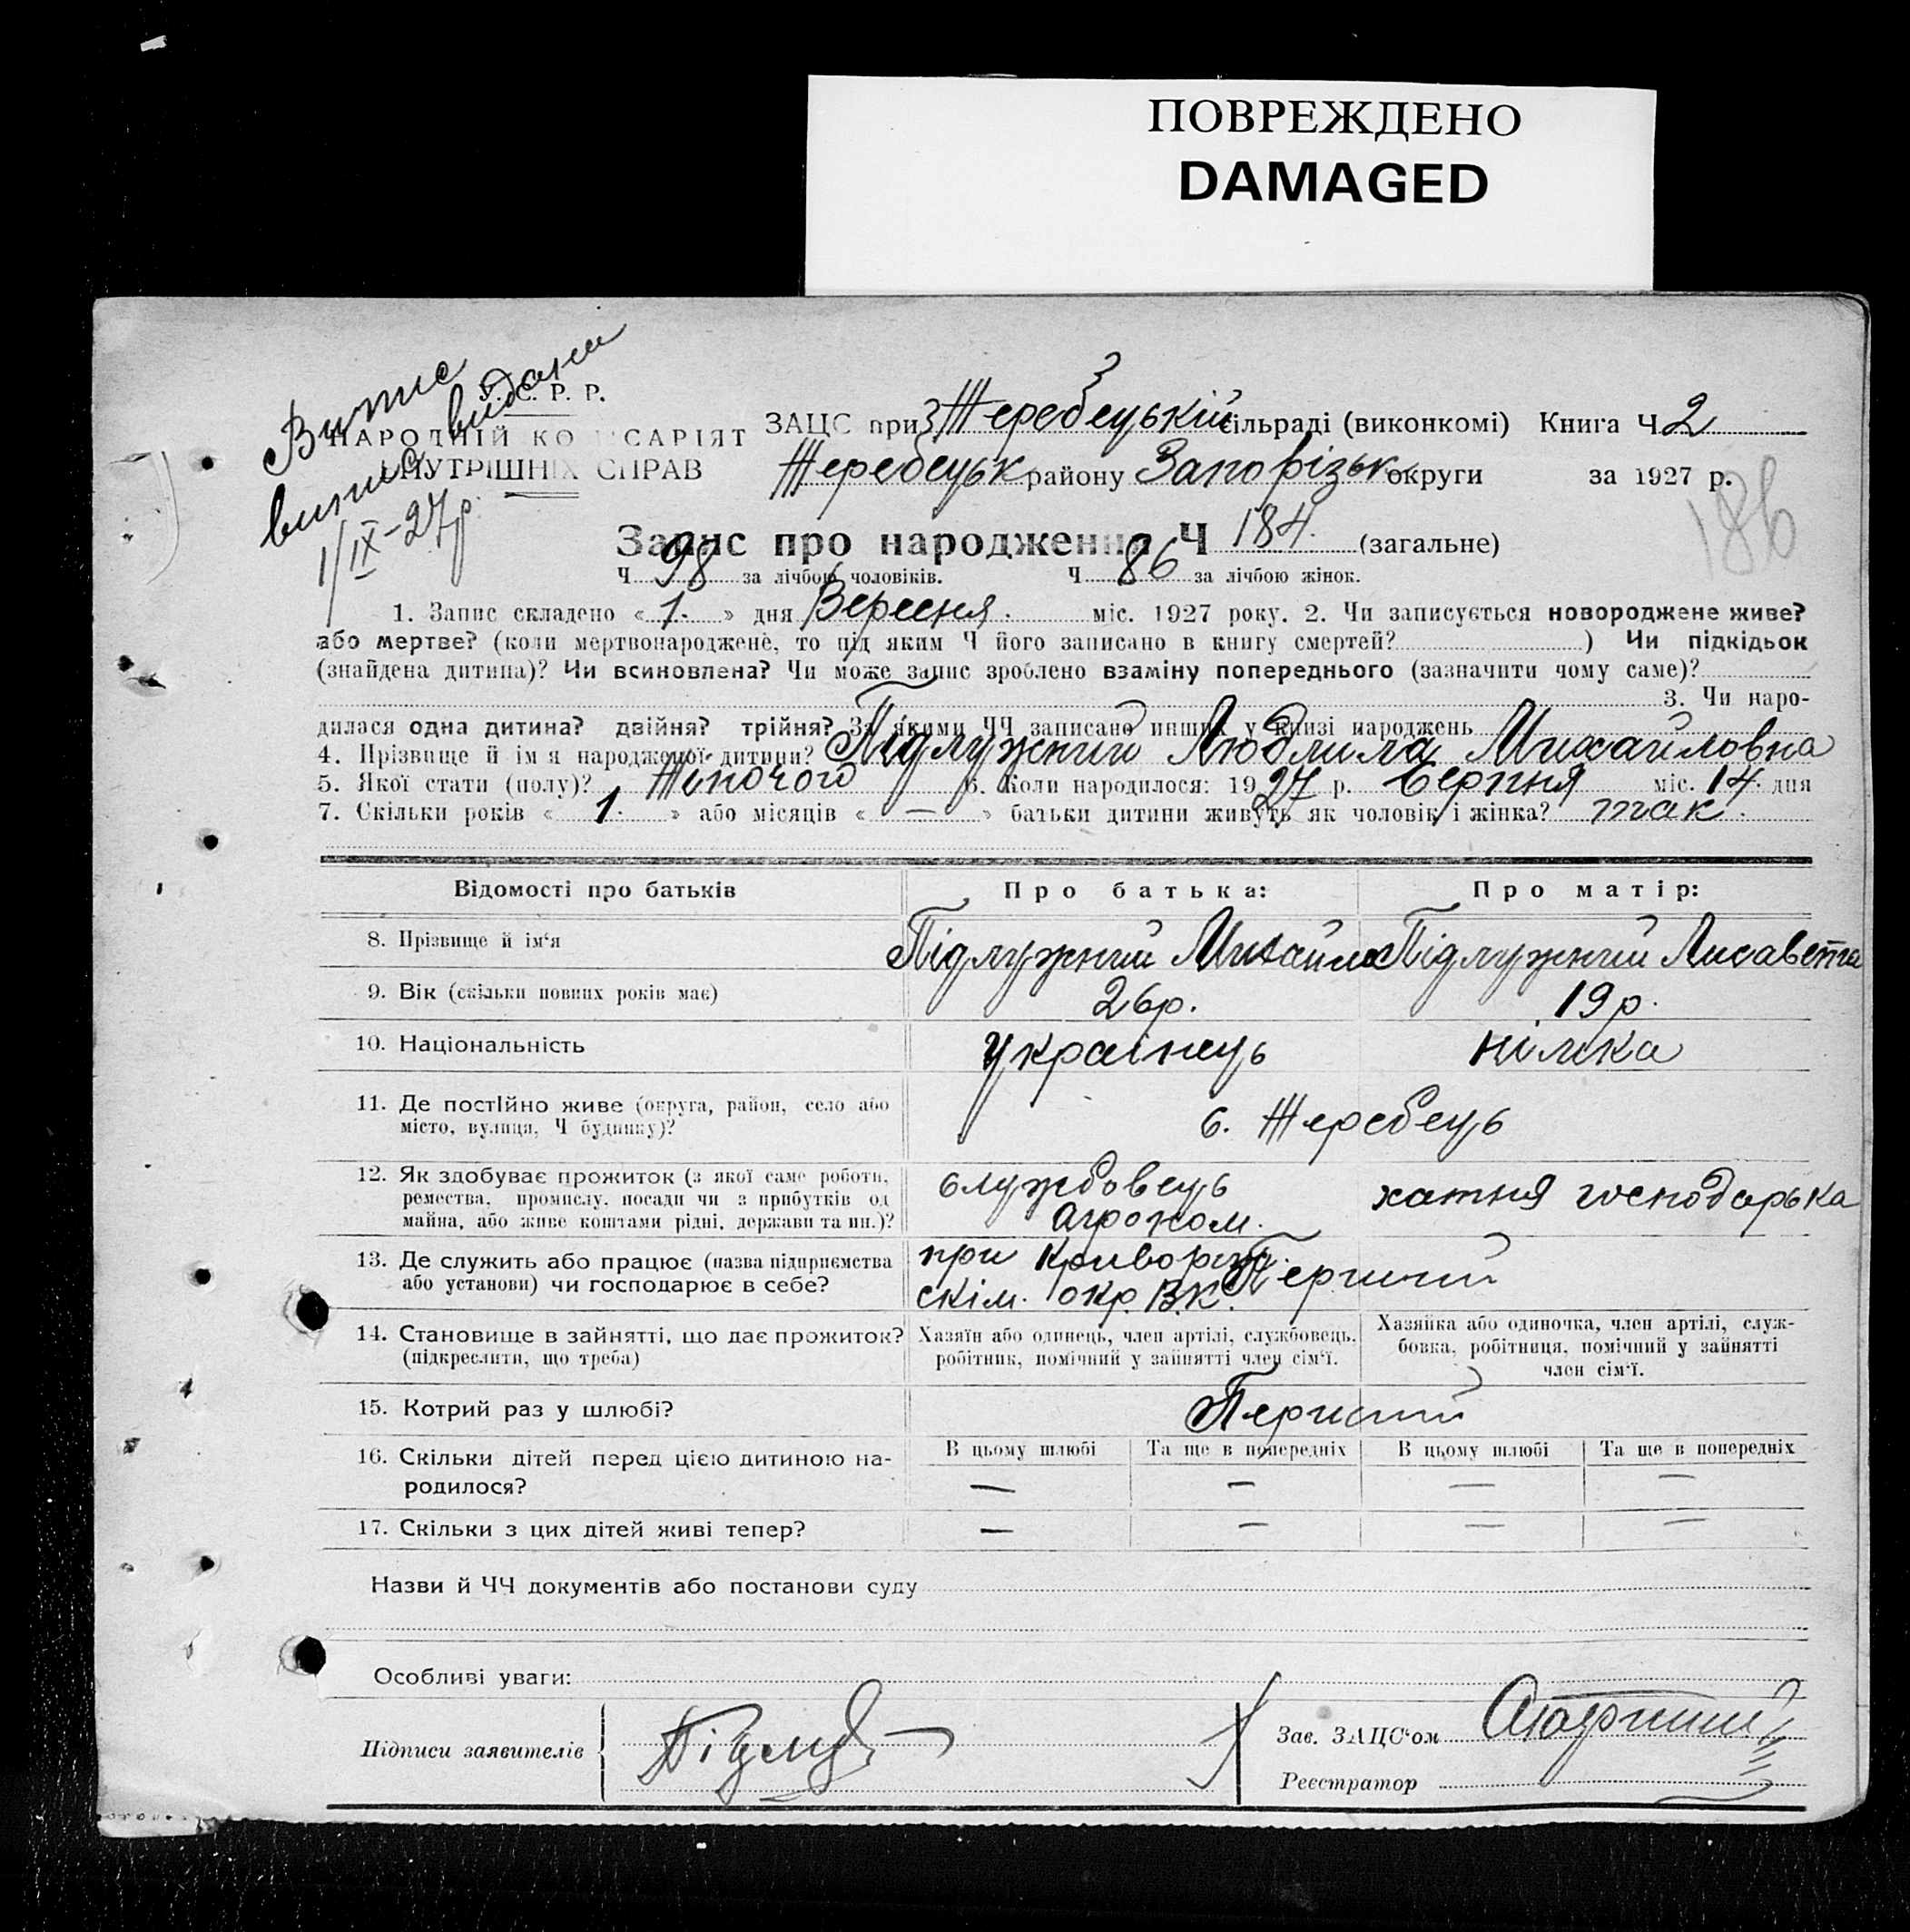 ПОВРЕЖДЕНО
DAMAGED
Витис видани
випис
1/IX-27р.
У. С. Р. Р.
НАРОДНІЙ КОМІСАРІЯТ
ВНУТРІШНІХ СПРАВ
ЗАЦС при Жеребецькій сільраді (виконкомі) Книга Ч. 2
Жеребецьк району Запорізьк округи за 1927 р.
186
Запис про народження Ч 184. (загальне)
Ч 98 за лічбою чоловіків. Ч 86 за лічбою жінок.
1. Запис складено « 1. » дня Вересня. міс. 1927 року. 2. Чи записується новороджене живе?
або мертве? (коли мертвонароджене, то під яким Ч його записано в книгу смертей? ) Чи підкідьок
(знайдена дитина)? Чи всиновлена? Чи може запис зроблено взаміну попереднього (зазначити чому саме)?
3. Чи наро-
дилася одна дитина? двійня? трійня? За якими ЧЧ записано инших у книзі народжень
4. Прізвище й ім'я народженої дитини? Підлужний Людмила Михайловна
5. Якої стати (полу)? Жіночого 6. Коли народилося: 1927 р. Серпня міс. 14. дня
7. Скільки років « 1. » або місяців « — » батьки дитини живуть як чоловік і жінка? так.
Відомості про батьків Про батька: Про матір:
8. Прізвище й ім'я Підлужний Михайло Підлужний Лисавета
9. Вік (скільки повних років має) 26р. 19р.
10. Національність українець німка
11. Де постійно живе (округа, район, село або
місто, вулиця, Ч будинку)? с. Жеребець
12. Як здобуває прожиток (з якої саме роботи,
ремества, промислу, посади чи з прибутків од
майна, або живе коштами рідні, держави та ин.)? службовець агроном. хатня господарька
13. Де служить або працює (назва підприємства
або установи) чи господарює в себе? при Криворізь скім. окр. В.К. Перший
14. Становище в зайнятті, що дає прожиток?
(підкреслити, що треба)
Хазяїн або одинець, член артілі, службовець,
робітник, помічний у зайнятті член сім'ї.
Хазяйка або одиночка, член артілі, служ-
бовка, робітниця, помічний у зайнятті
член сім'ї.
15. Котрий раз у шлюбі? Перший
16. Скільки дітей перед цією дитиною на-
родилося?
В цьому шлюбі Та ще в попередніх В цьому шлюбі Та ще в попередніх
— — — —
17. Скільки з цих дітей живі тепер? — — — —
Назви й ЧЧ документів або постанови суду
Особливі уваги:
Підписи заявителів
Зав. ЗАЦС'ом
Реєстратор